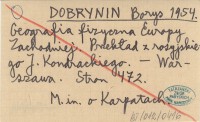 DOBRYNIN Borys 1954.
Geografia fizyczna Europy
Zachodniej. Przekład z rosyjskie-
go J. Kondrackiego. — War-
szawa. Stron 472.
M.in. o Karpatach.